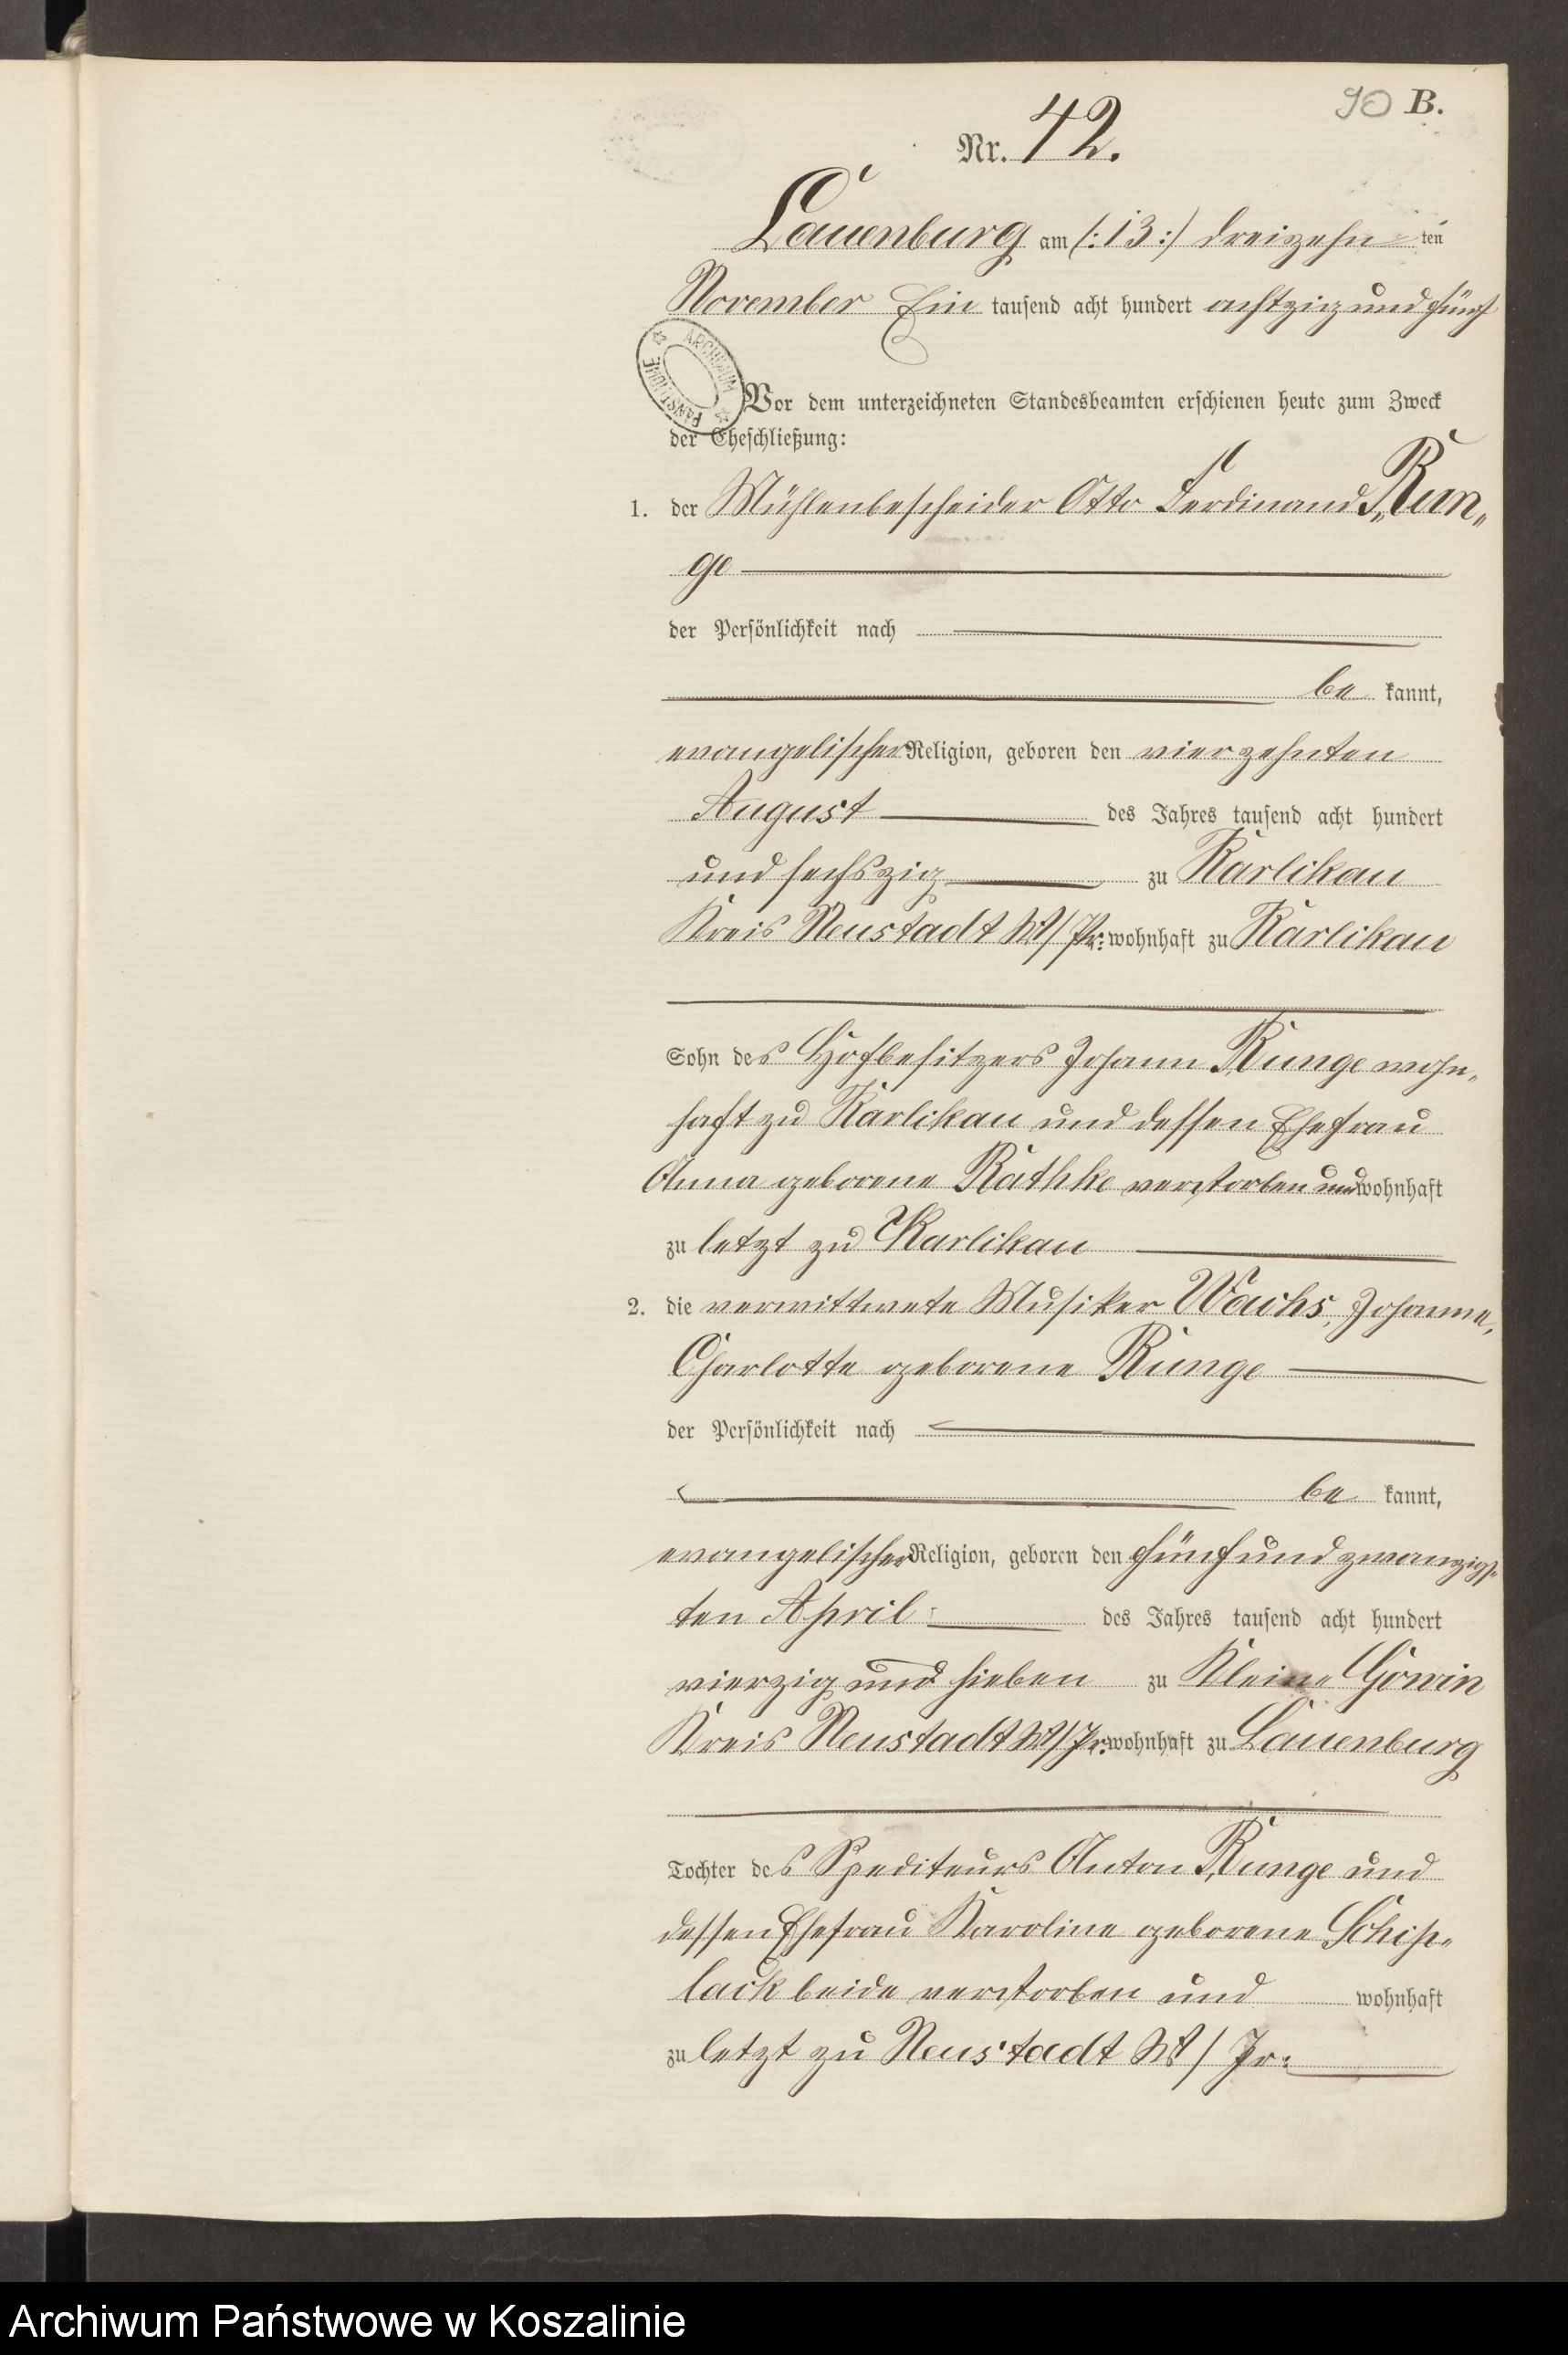 90 B.
Nr. 42.
Lauenburg am (:13:) dreizehn ten
November Ein tausend acht hundert achtzig und fünf
ARCHIWUM PAŃSTWOWE
Vor dem unterzeichneten Standesbeamten erschienen heute zum Zweck
der Eheschließung:
1. der Mühlenbescheider Otto Ferdinand Run„
ge
der Persönlichkeit nach
be kannt,
evangelischer Religion, geboren den vierzehnten
August des Jahres tausend acht hundert
und sechszig zu Karlikau
Kreis Neustadt W/Pr: wohnhaft zu Karlikau
Sohn des Hofbesitzers Johann Runge wohn„
haft zu Karlikau und dessen Ehefrau
Anna geborene Rathke verstorben und wohnhaft
zu letzt zu Karlikau
2. die verwittwete Musiker Wachs, Johanne,
Charlotte geborene Runge
der Persönlichkeit nach
be kannt,
evangelischer Religion, geboren den fünf und zwanzigs„
ten April des Jahres tausend acht hundert
vierzig und sieben zu Klein„ Gowin
Kreis Neustadt W/Pr. wohnhaft zu Lauenburg
Tochter des Spediteurs Anton Runge und
dessen Ehefrau Karoline geborene Schip„
lack beide verstorben und wohnhaft
zu letzt zu Neustadt W/Pr:
Archiwum Państwowe w Koszalinie